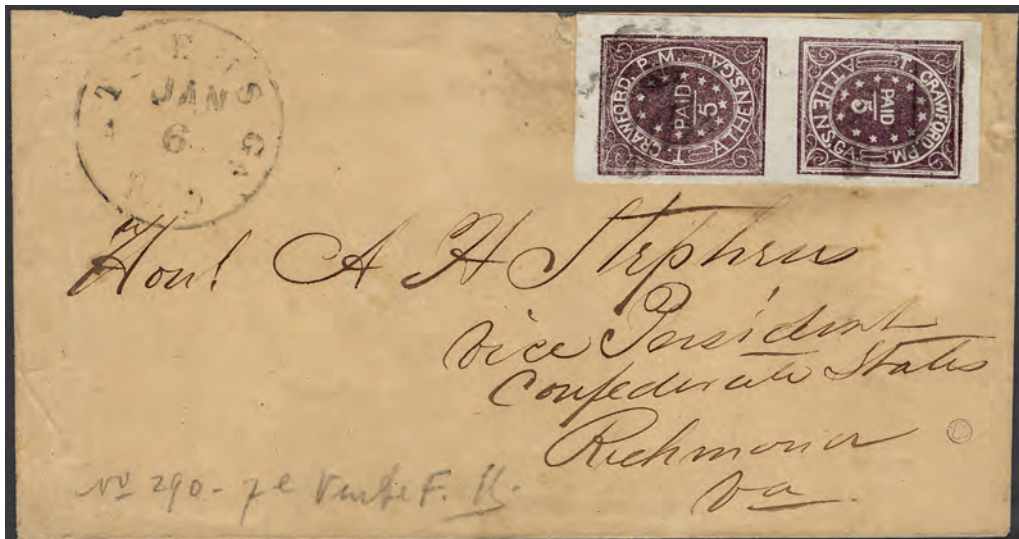 ATHENS GA.
JAN
6
T. CRAWFORD, P.M.
ATHENS, GA.
PAID
5
T. CRAWFORD, P.M.
ATHENS, GA.
PAID
5
Hon! A H Stephens
Vice President
Confederate States
Richmond
Va
No 290 - 7e Vente F.